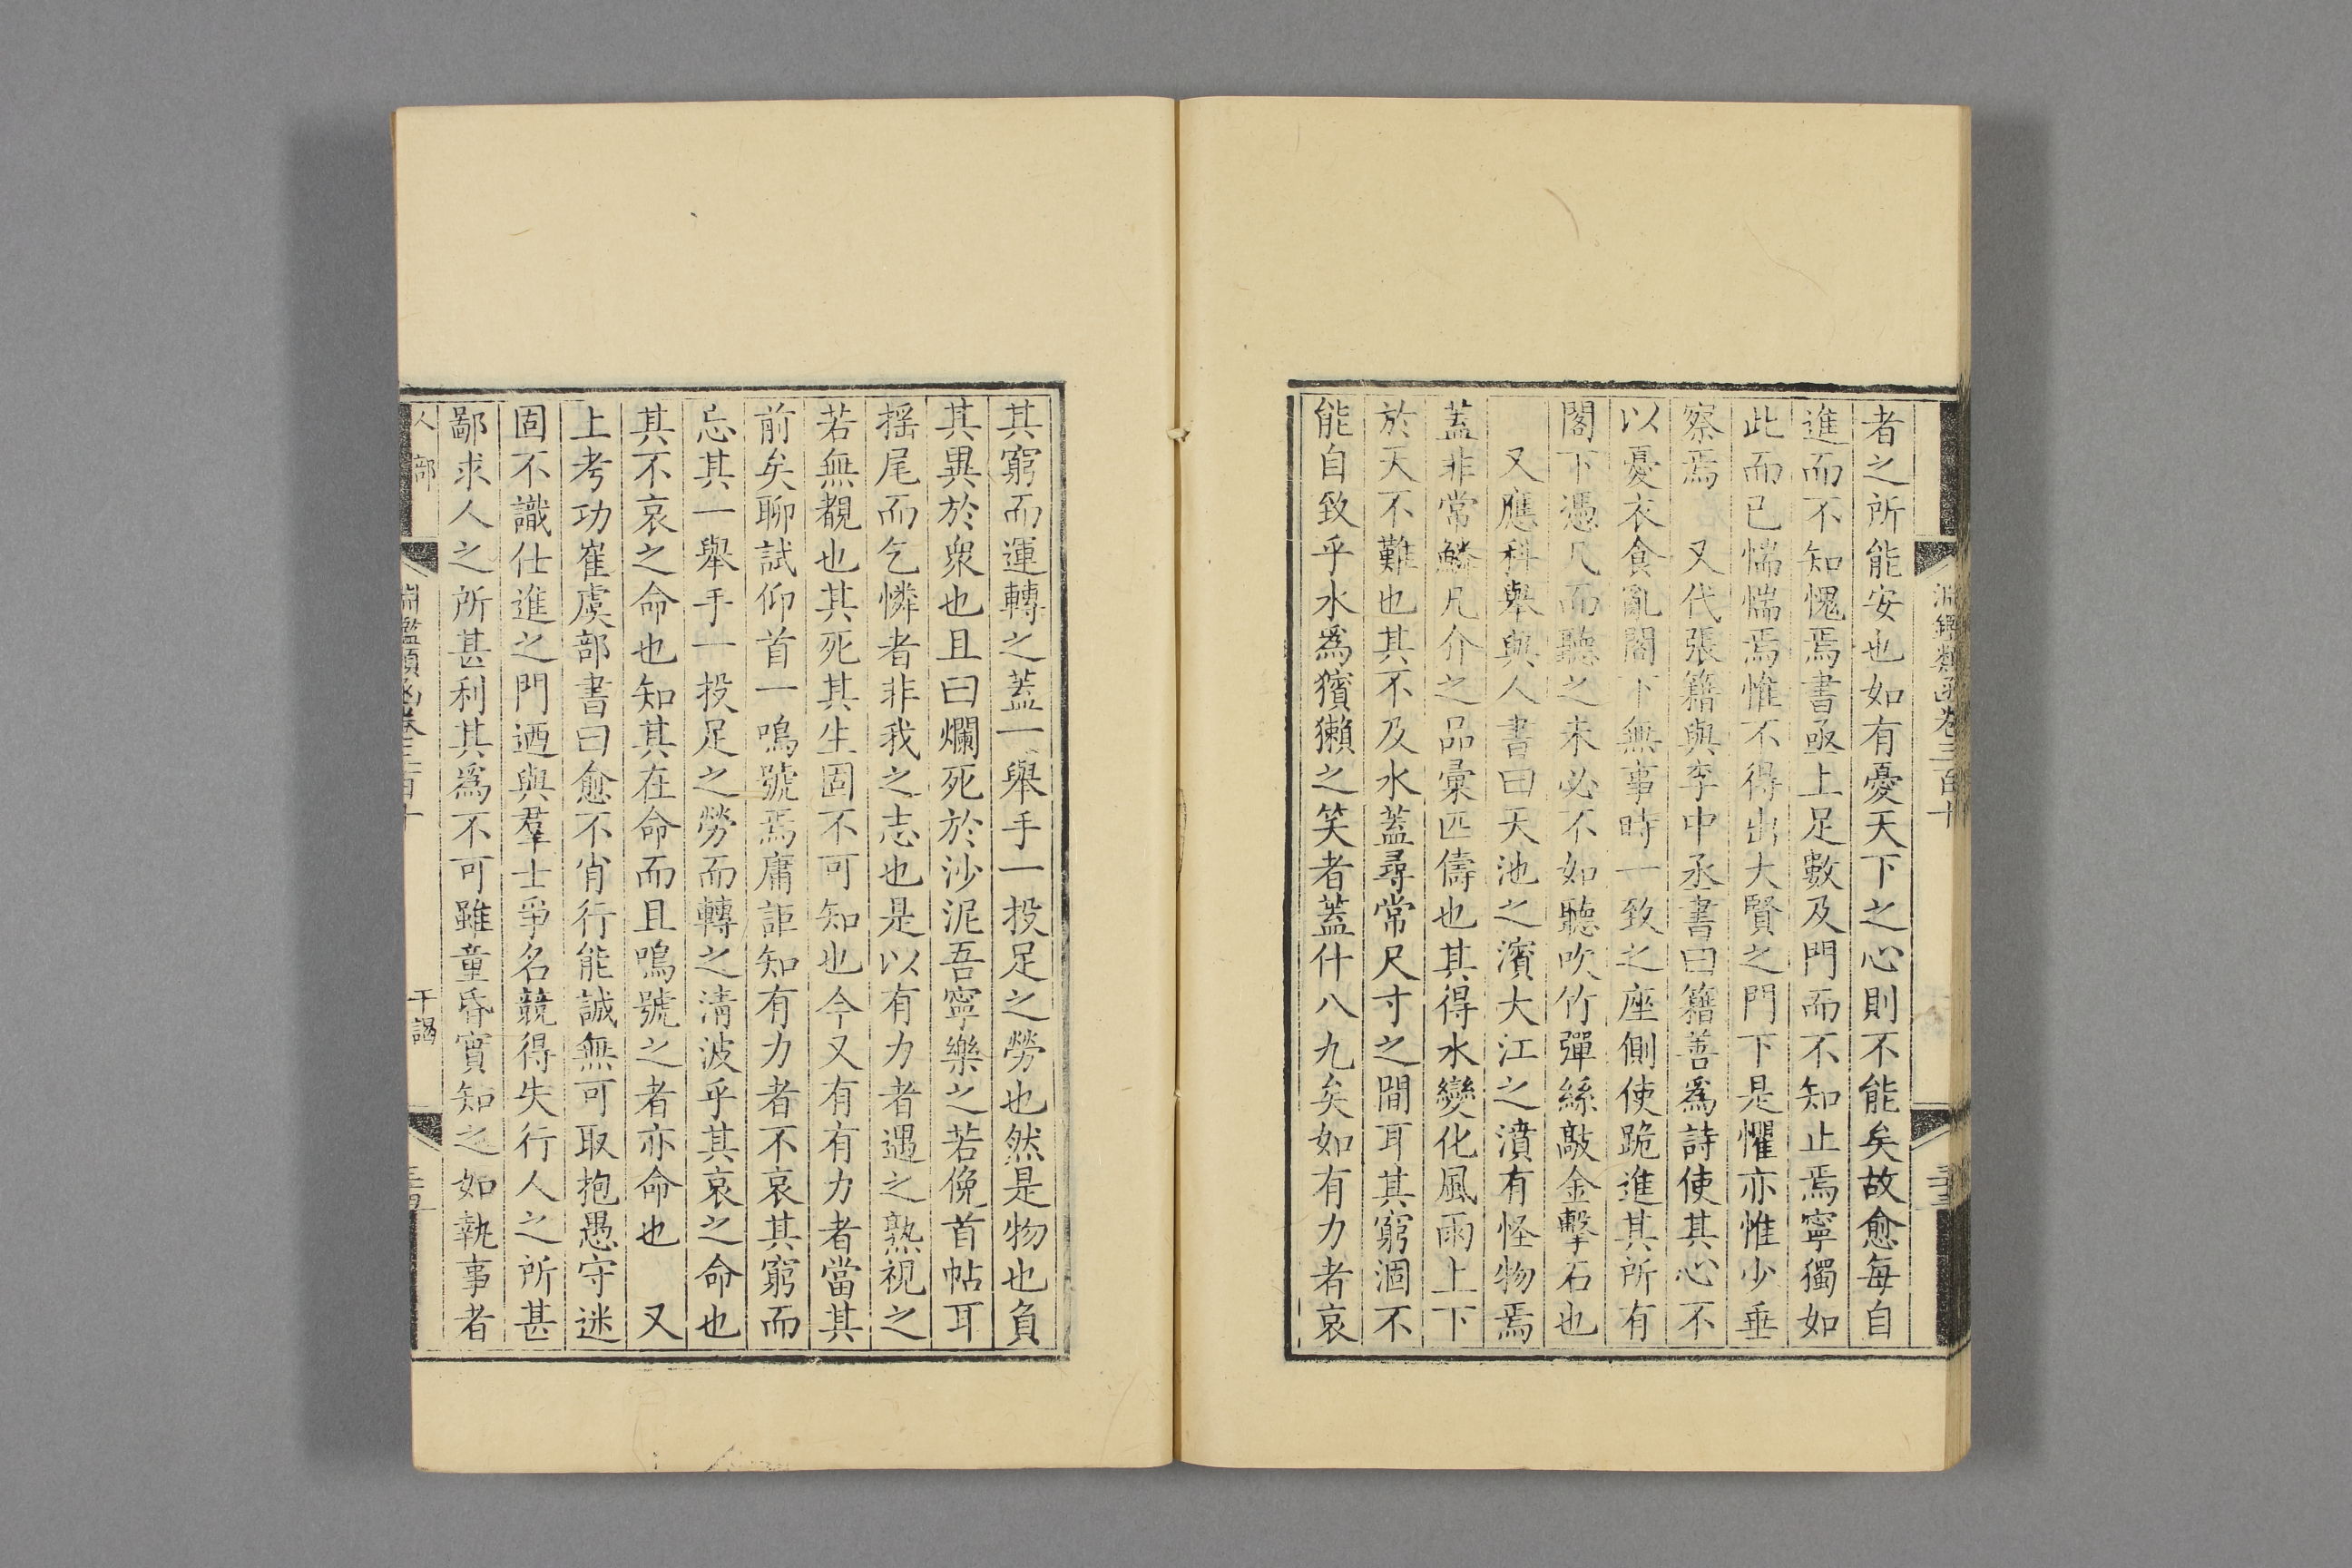 淵鑑類函卷三百十
者之所能安也如有憂天下之心則不能矣故愈每自
進而不知愧焉書亟上足數及門而不知止焉寧獨如
此而已惴惴焉惟不得出大賢之門下是懼亦惟少垂
察焉　又代張籍與李中丞書曰籍善爲詩使其心不
以憂衣食亂閣下無事時一致之座側使跪進其所有
閣下憑几而聽之未必不如聽吹竹彈絲敲金擊石也
又應科舉與人書曰天池之濱大江之濆有怪物焉
蓋非常鱗凡介之品彙匹儔也其得水變化風雨上下
於天不難也其不及水蓋尋常尺寸之間耳其窮涸不
能自致乎水爲獱獺之笑者蓋什八九矣如有力者哀
其窮而運轉之蓋一舉手一投足之勞也然是物也負
其異於衆也且曰爛死於沙泥吾寧樂之若俛首帖耳
搖尾而乞憐者非我之志也是以有力者遇之熟視之
若無覩也其死其生固不可知也今又有有力者當其
前矣聊試仰首一鳴號焉庸詎知有力者不哀其窮而
忘其一舉手一投足之勞而轉之淸波乎其哀之命也
其不哀之命也知其在命而且鳴號之者亦命也　又
上考功崔虞部書曰愈不肖行能誠無可取抱愚守迷
固不識仕進之門迺與羣士爭名競得失行人之所甚
鄙求人之所甚利其爲不可雖童昏實知之如執事者
人部　淵鑑類函卷三百十　干謁